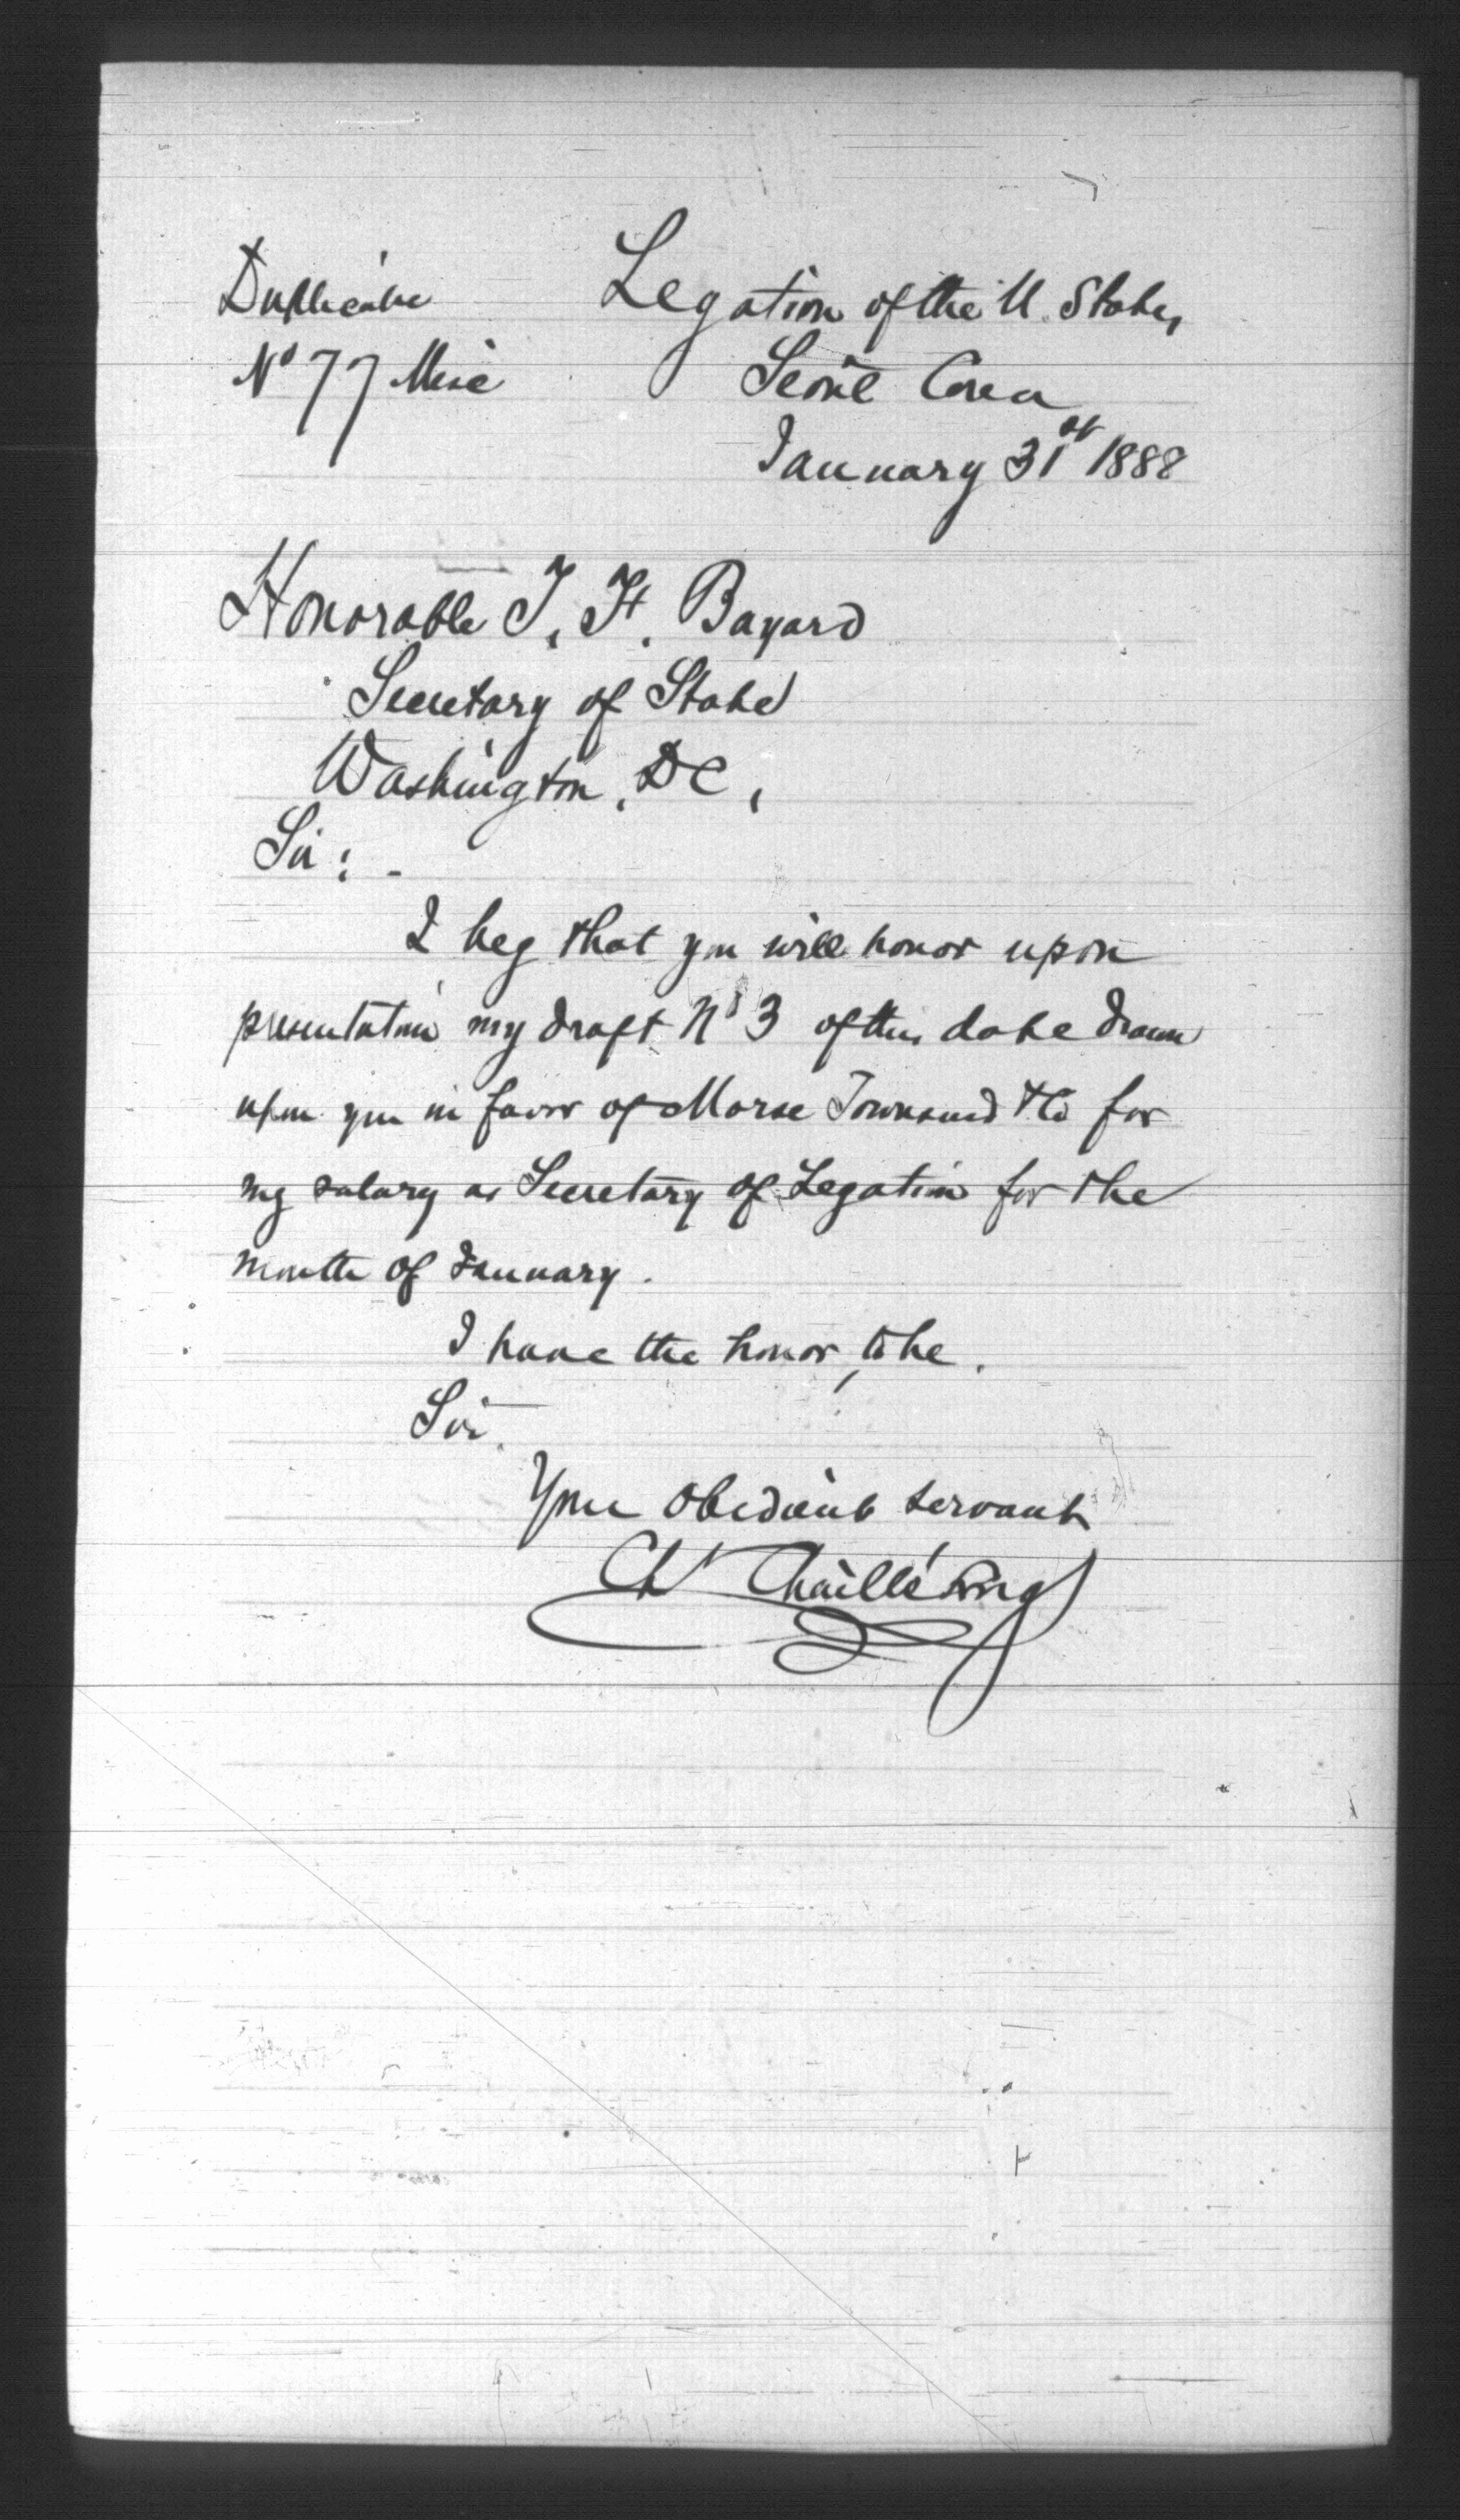 Duplicate
Legation of the U. States,
No 77 Misc
Seoul Corea
January 31st 1888
Honorable T. F. Bayard
Secretary of State
Washington, DC,
Sir: -
I beg that you will honor upon
presentation my draft No 3 of this date drawn
upon you in favor of Morse Townsend & Co for
my salary as Secretary of Legation for the
month of January.
I have the honor, to be,
Sir,
Your obedient servant
Ch Chaillé Long